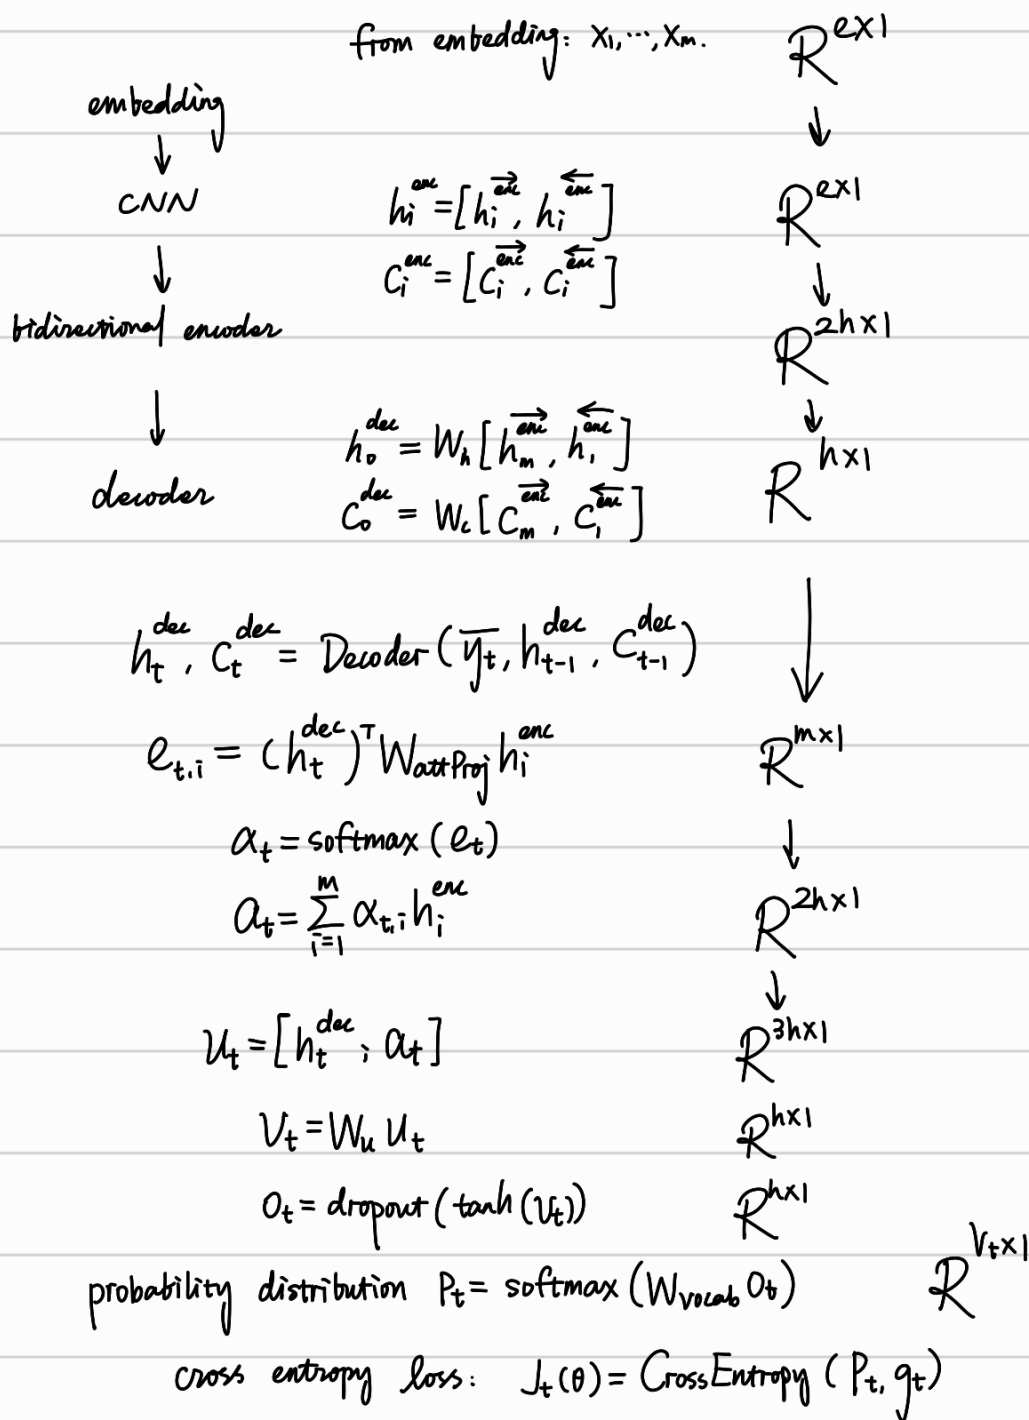 from embedding: x₁,⋯,xₘ. ℝ^{e×1}
embedding
↓ ↓
CNN hᵢ^{enc} = [\overrightarrow{hᵢ^{enc}}, \overleftarrow{hᵢ^{enc}}] ℝ^{e×1}
↓ cᵢ^{enc} = [\overrightarrow{cᵢ^{enc}}, \overleftarrow{cᵢ^{enc}}] ↓
bidirectional encoder ℝ^{2h×1}
↓ h₀^{dec} = W_h[\overrightarrow{h_m^{enc}}, \overleftarrow{h₁^{enc}}] ↓
decoder ℝ^{h×1}
c₀^{dec} = W_c[\overrightarrow{c_m^{enc}}, \overleftarrow{c₁^{enc}}]
h_t^{dec}, c_t^{dec} = Decoder(\overline{y_t}, h_{t-1}^{dec}, c_{t-1}^{dec}) ↓
e_{t,i} = (h_t^{dec})^T W_{attProj} h_i^{enc} ℝ^{m×1}
α_t = softmax(e_t) ↓
a_t = \sum_{i=1}^{m} α_{t,i} h_i^{enc} ℝ^{2h×1}
↓
u_t = [h_t^{dec}; a_t] ℝ^{3h×1}
v_t = W_u u_t ℝ^{h×1}
o_t = dropout(tanh(v_t)) ℝ^{h×1}
probability distribution P_t = softmax(W_{vocab} o_t) ℝ^{V_t×1}
cross entropy loss: J_t(θ) = CrossEntropy(P_t, g_t)